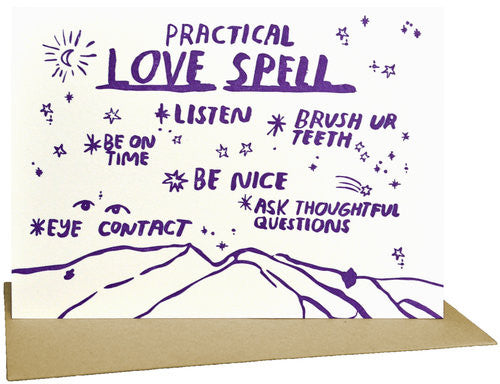 PRACTICAL
LOVE SPELL
*LISTEN
*BRUSH UR
TEETH
*BE ON
TIME
*BE NICE
*ASK THOUGHTFUL
QUESTIONS
*EYE CONTACT